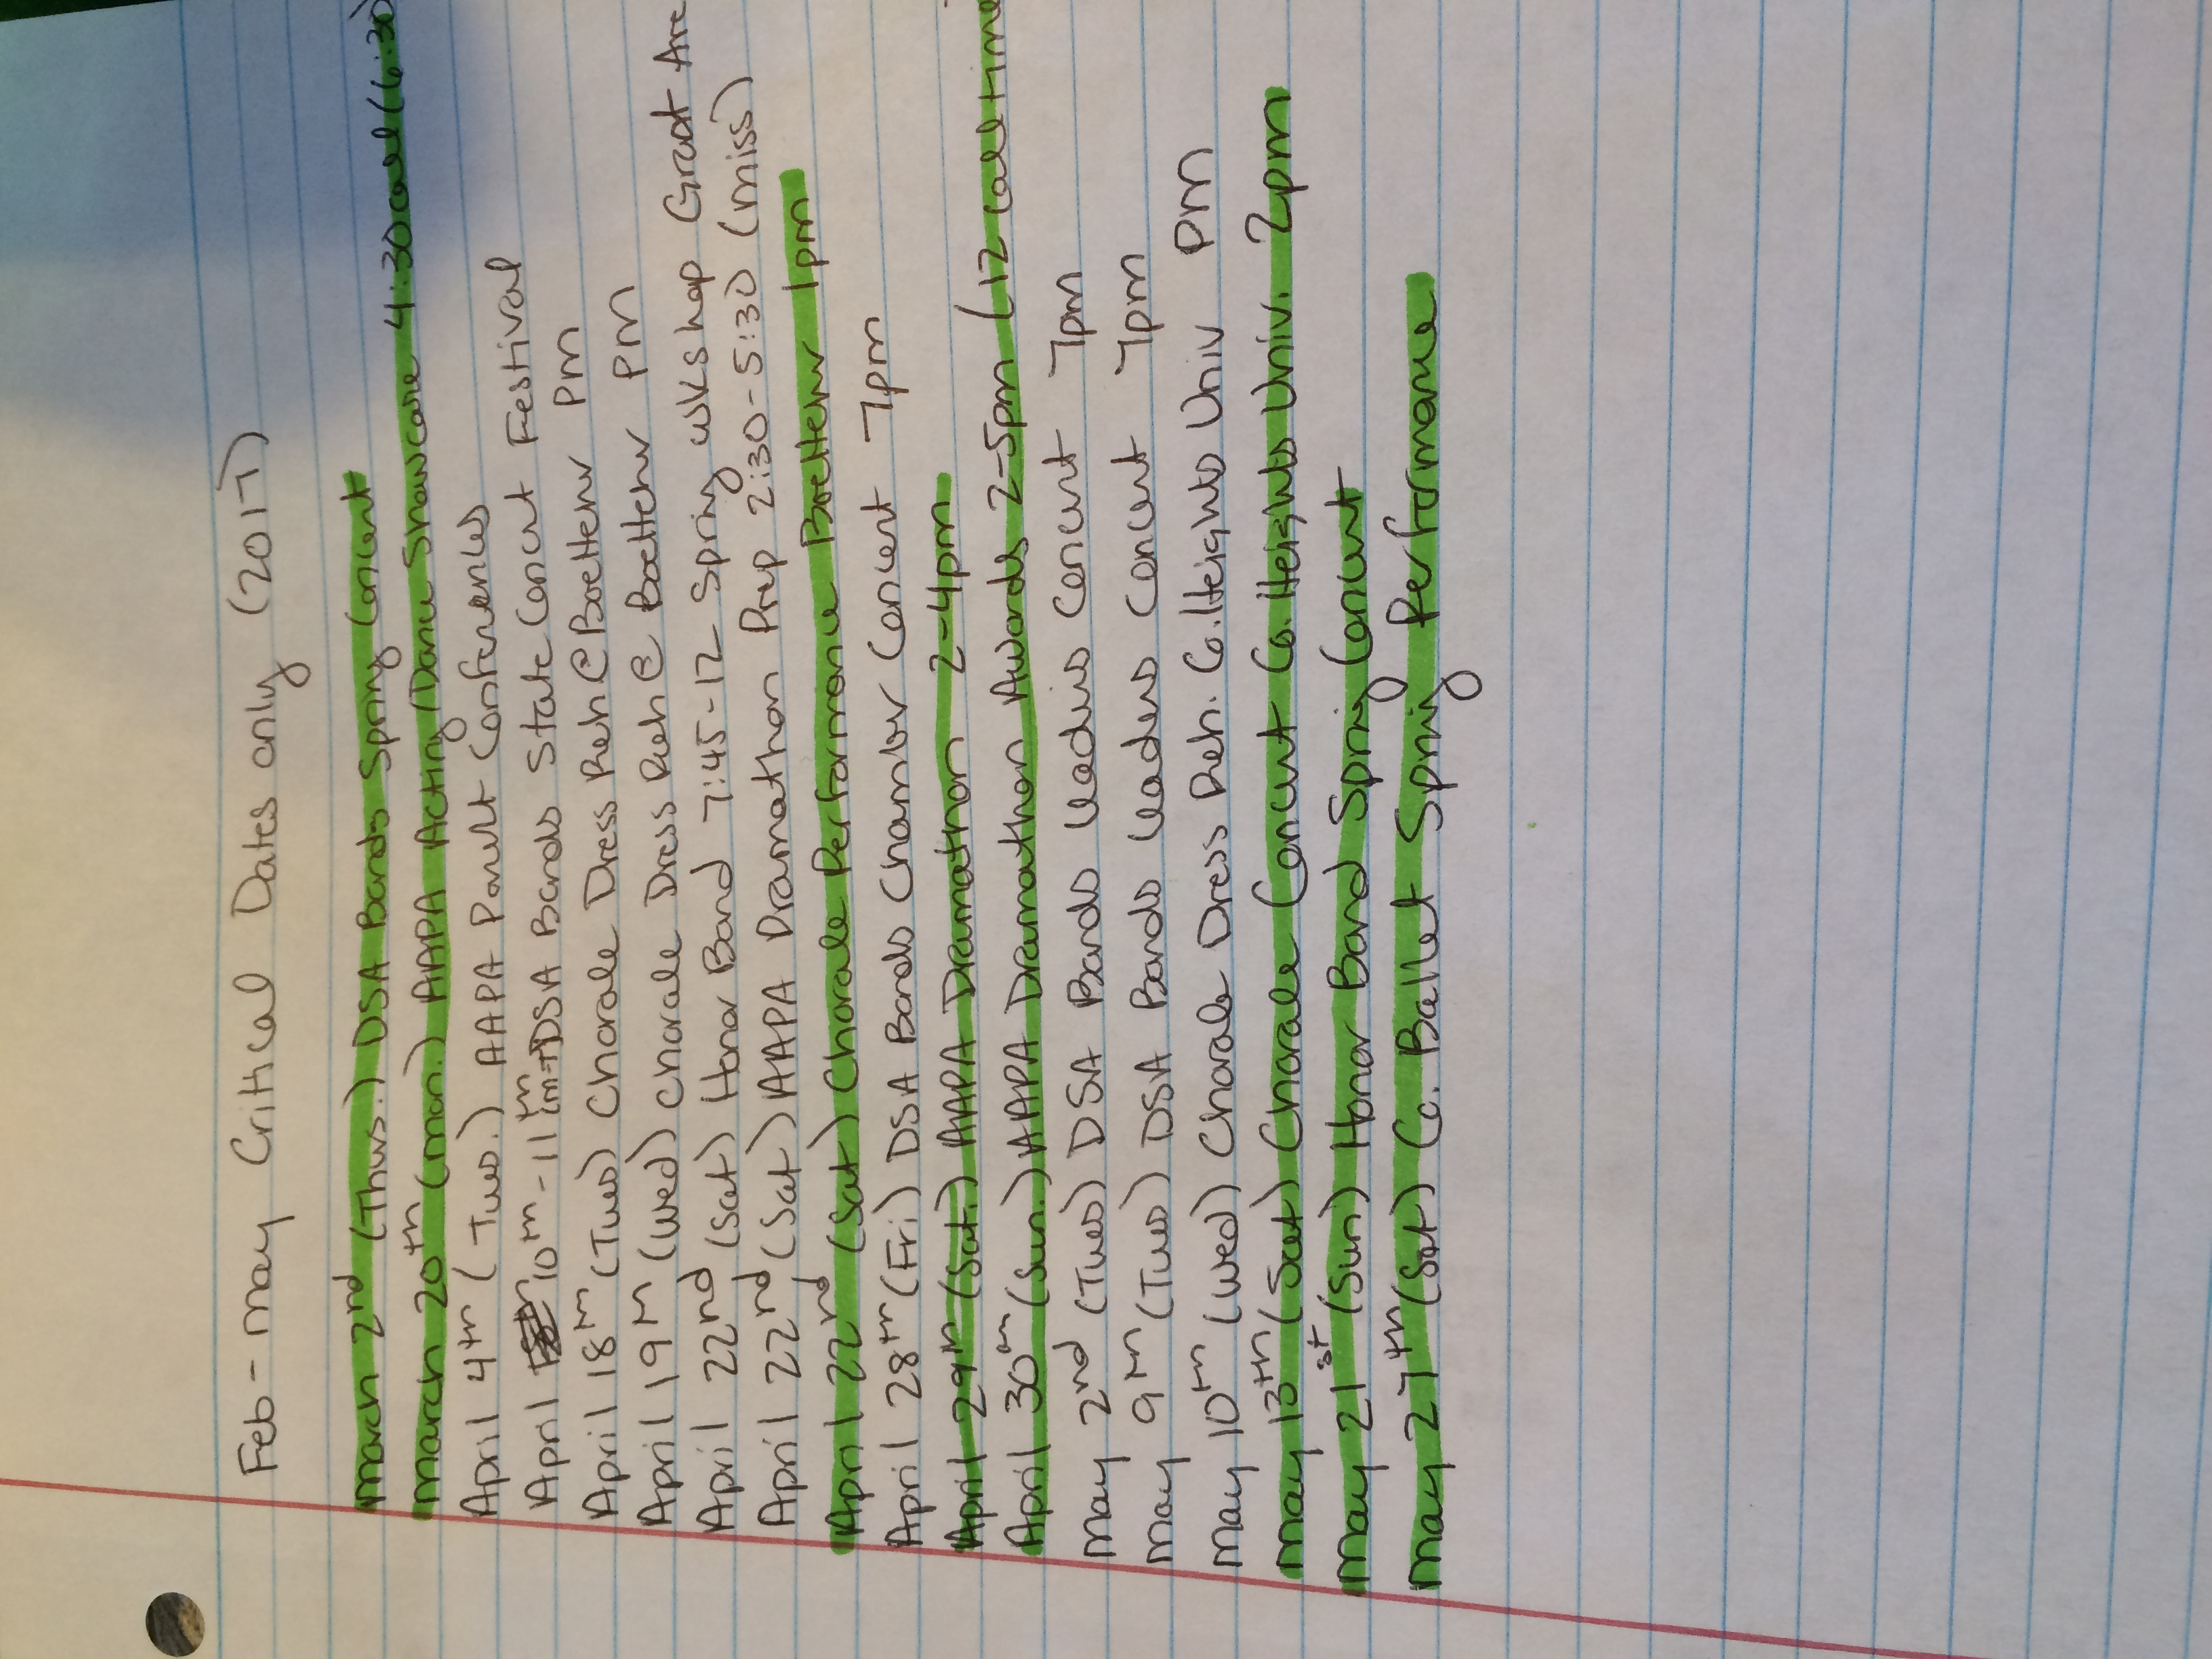 Feb-may Critical Dates only (2017)
march 2nd (Thurs.) DSA Bands Spring Concert
march 20th (mon.) AAPA Acting/Dance Showcase 4:30 call (6:30)
April 4th (Tues.) AAPA Parent Conferences
April 10th-11th DSA Bands State Concert Festival
April 18th (Tues) Chorale Dress Reh @ Boettcher pm
April 19th (wed) Chorale Dress Reh @ Boettcher pm
April 22nd (Sat) Honor Band 7:45-12 Spring wkshop Grant
April 22nd (Sat) AAPA Dramathon Prep 2:30-5:30 (miss)
April 22nd (Sat) Chorale Performance Boettcher 1pm
April 28th (Fri) DSA Bands Chamber Concert 7pm
April 29th (Sat.) AAPA Dramathon 2-4pm
April 30th (Sun.) AAPA Dramathon Awards 2-5pm (12 call time
may 2nd (Tues) DSA Bands Leaders Concert 7pm
may 9th (Tues) DSA Bands Leaders Concert 7pm
may 10th (wed) Chorale Dress Reh. Co. Heights Univ pm
may 13th (Sat) Chorale Concert Co. Heights Univ. 2pm
may 21st (Sun) Honor Band Spring Concert
may 27th (Sat) Co. Ballet Spring Performance